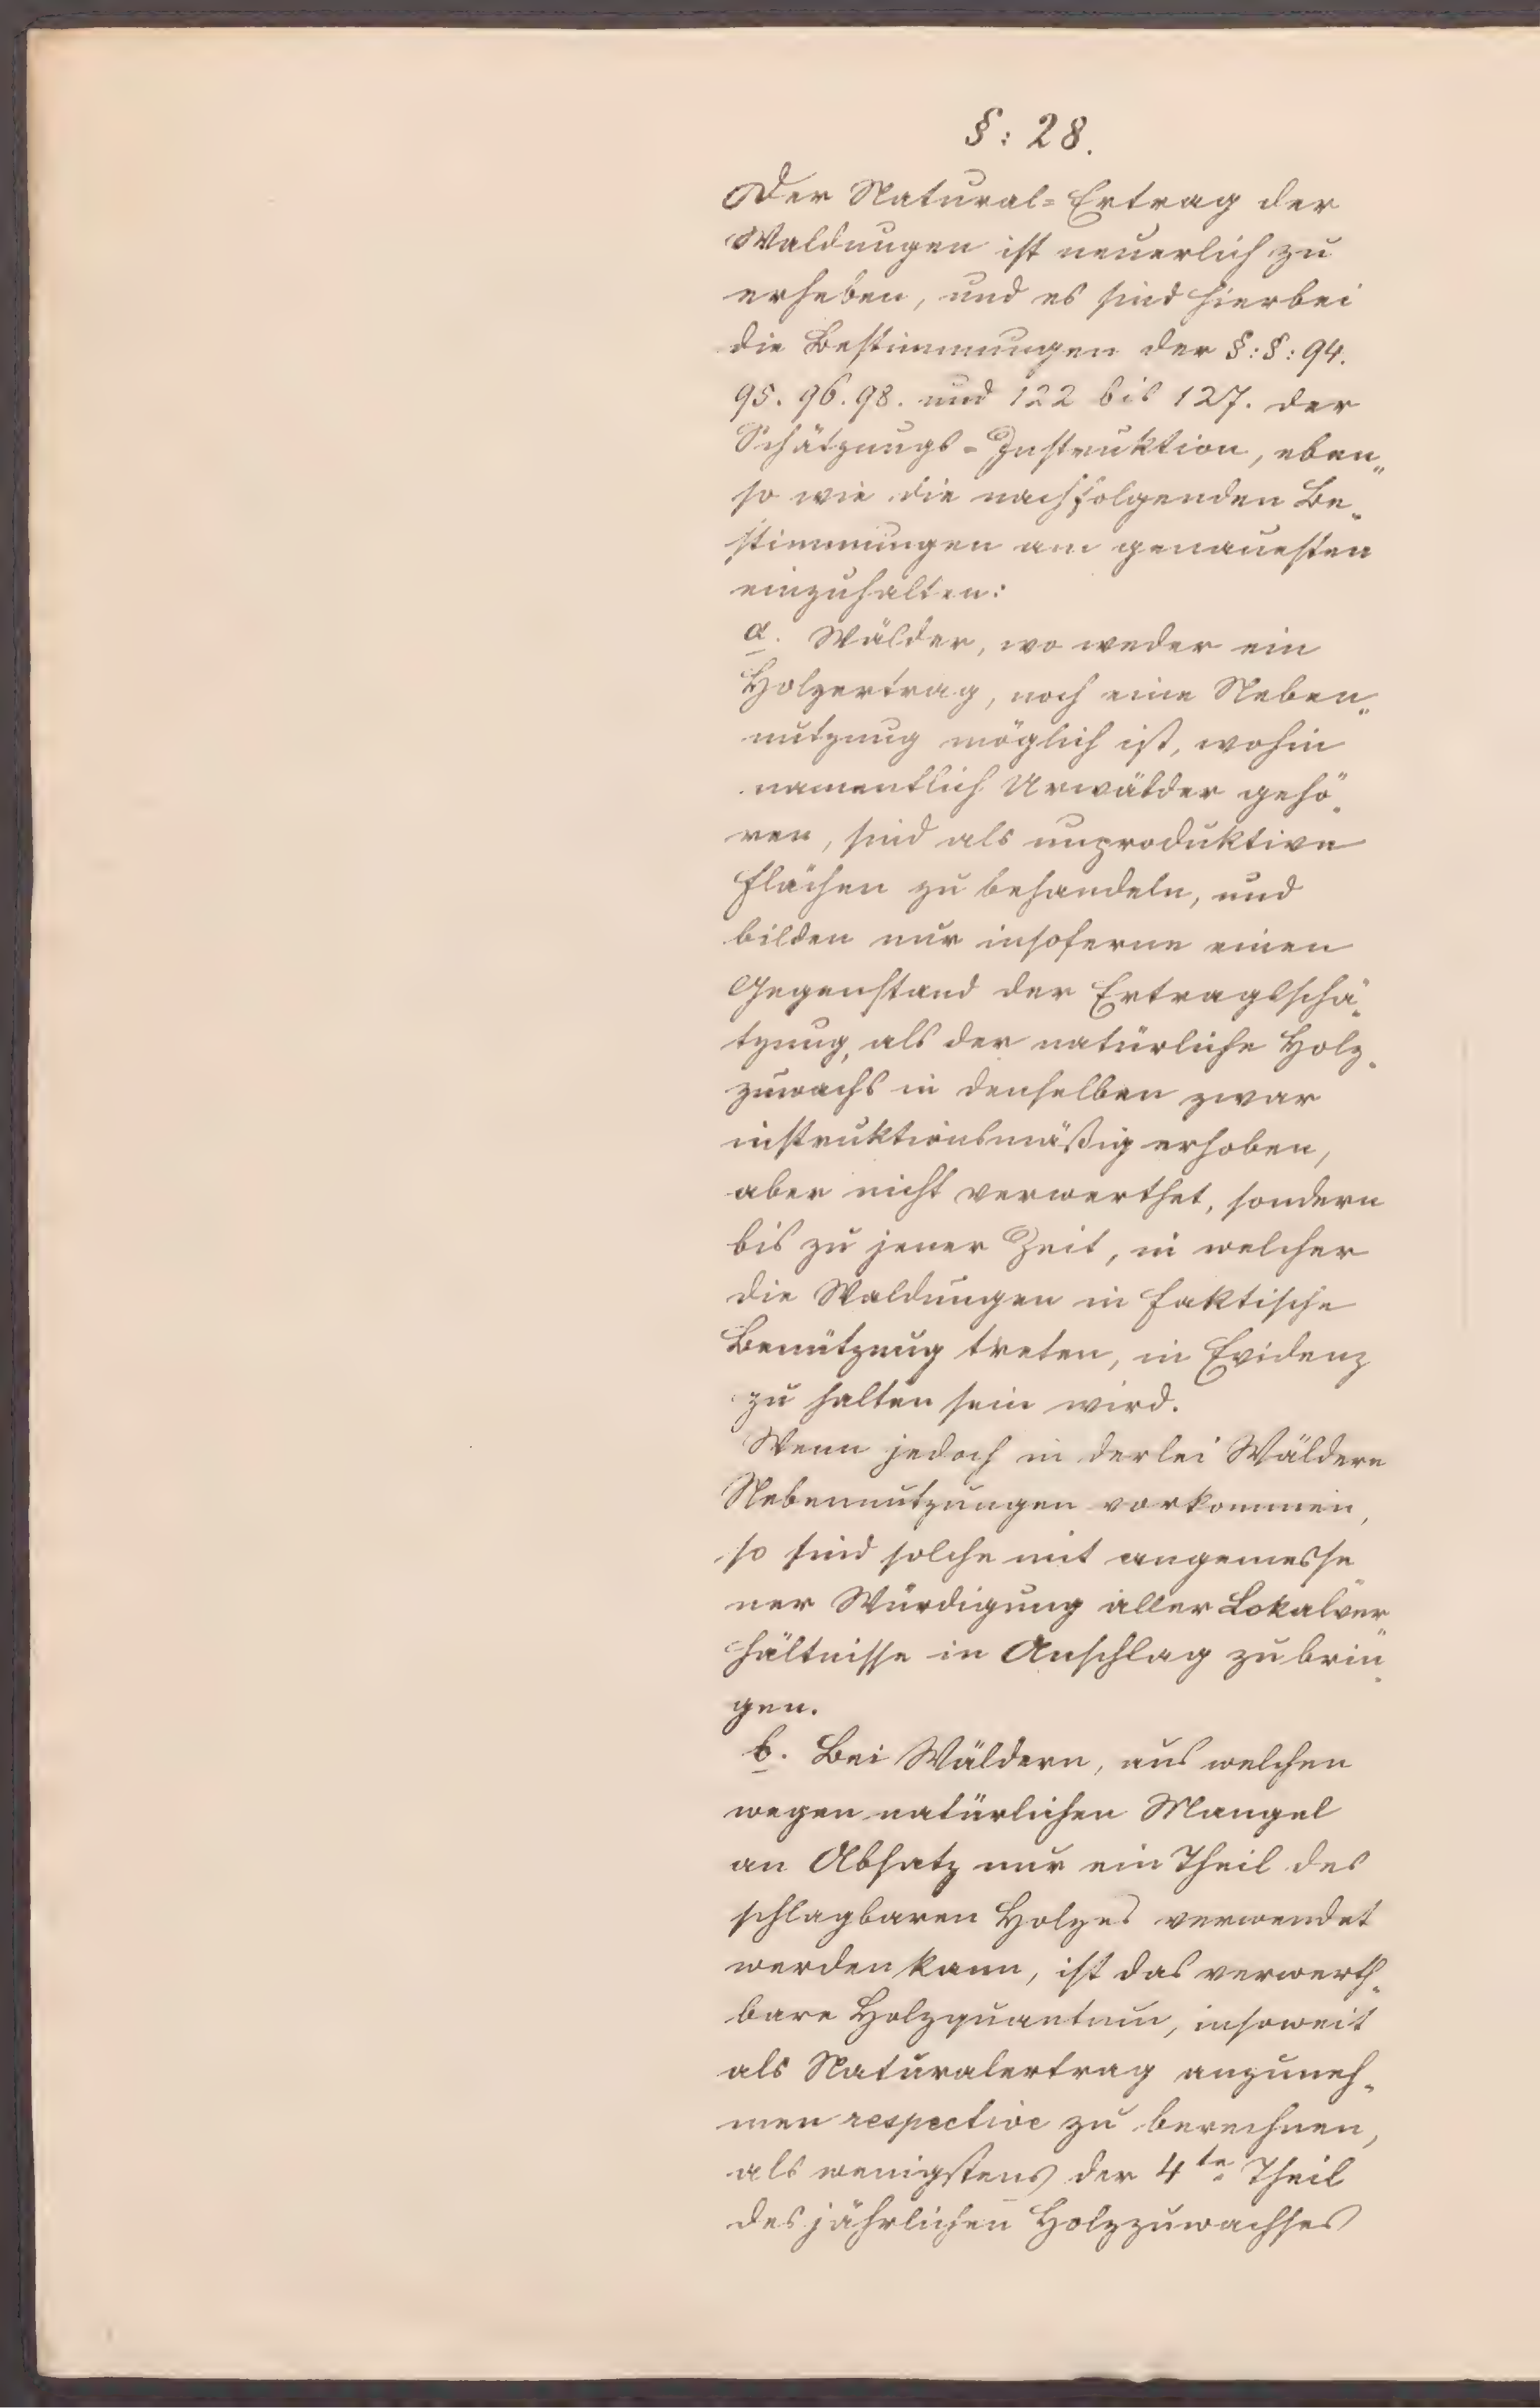 §: 28.
Der Natural-Ertrag der
Waldungen ist neuerlich zu
erheben, und es sind hierbei
die Bestimmungen der §:§: 94.
95. 96. 98. und 122 bis 127. der
Schätzungs-Instruktion, eben„
so wie die nachfolgenden Be„
stimmungen am genauesten
einzuhalten:
a. Wälder, wo weder ein
Holzertrag, noch eine Neben„
nutzung möglich ist, wohin
namentlich Urwälder gehö„
ren, sind als unproduktive
Flächen zu behandeln, und
bilden nur insoferne einen
Gegenstand der Ertragsschä„
tzung, als der natürliche Holz„
zuwachs in denselben zwar
instruktionsmäßig erhoben,
aber nicht verwerthet, sondern
bis zu jener Zeit, in welcher
die Waldungen in faktische
Benützung treten, in Evidenz
zu halten sein wird.
Wenn jedoch in derlei Wäldern
Nebennutzungen vorkommen,
so sind solche mit angemesse„
ner Würdigung aller Lokalver„
hältnisse in Anschlag zu brin„
gen.
b. Bei Wäldern, aus welchen
wegen natürlichen Mangel
an Absatz nur ein Theil des
schlagbaren Holzes verwendet
werden kann, ist das verwerth„
bare Holzquantum, insoweit
als Naturalertrag anzuneh„
men respective zu berechnen,
als wenigstens der 4te Theil
des jährlichen Holzzuwachses